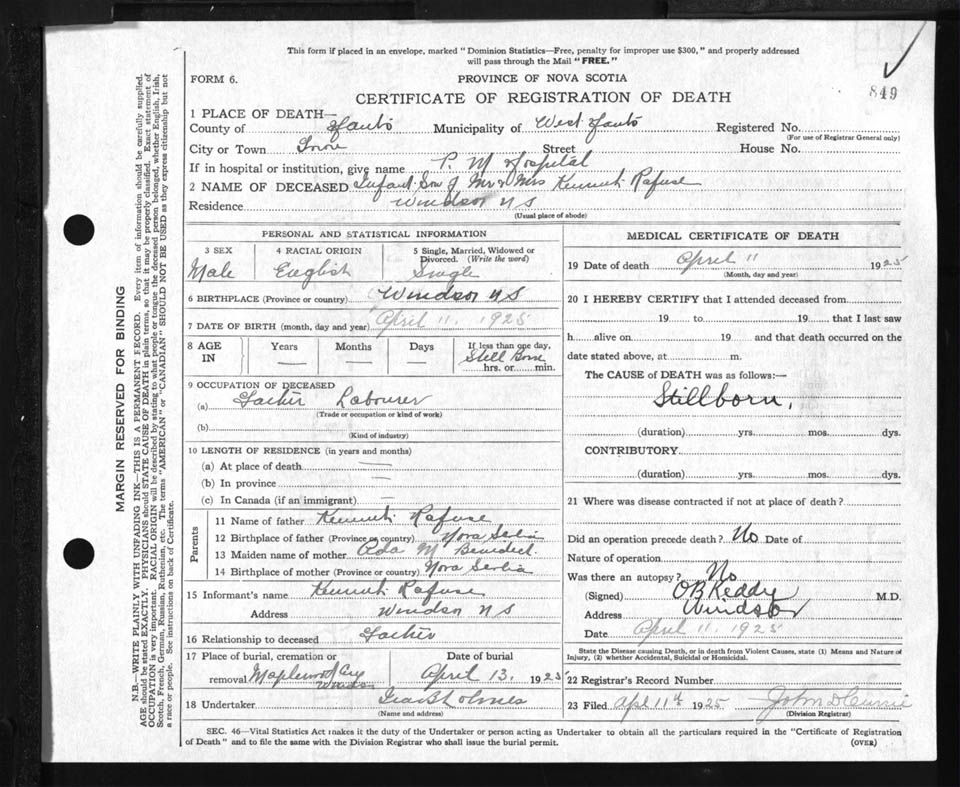 This form if placed in an envelope, marked "Dominion Statistics—Free, penalty for improper use $300," and properly addressed
will pass through the Mail "FREE."
FORM 6.
PROVINCE OF NOVA SCOTIA
849
CERTIFICATE OF REGISTRATION OF DEATH
1 PLACE OF DEATH—
County of Hants Municipality of West Hants Registered No.
(For use of Registrar General only)
City or Town Street House No.
If in hospital or institution, give name P. M Hospital
2 NAME OF DECEASED Infant Son of Mr & Mrs Kenneth Rafuse
Residence Windsor NS
(Usual place of abode)
PERSONAL AND STATISTICAL INFORMATION
3 SEX 4 RACIAL ORIGIN 5 Single, Married, Widowed or
Divorced. (Write the word)
Male English Single
6 BIRTHPLACE (Province or country) Windsor NS
7 DATE OF BIRTH (month, day and year) April 11, 1925
8 AGE IN Years Months Days If less than one day,
Still Born
hrs. or min.
9 OCCUPATION OF DECEASED
(a) Father Labourer
(Trade or occupation or kind of work)
(b)
(Kind of industry)
10 LENGTH OF RESIDENCE (in years and months)
(a) At place of death —
(b) In province —
(c) In Canada (if an immigrant) —
Parents
11 Name of father Kenneth Rafuse
12 Birthplace of father (Province or country) Nova Scotia
13 Maiden name of mother Ada M Benedict.
14 Birthplace of mother (Province or country) Nova Scotia
15 Informant's name Kenneth Rafuse
Address Windsor NS
16 Relationship to deceased Father
17 Place of burial, cremation or Date of burial
removal Maplewood Cey Windsor April 13, 1925
18 Undertaker Geo B Holmes
(Name and address)
MEDICAL CERTIFICATE OF DEATH
19 Date of death April 11 1925
(Month, day and year)
20 I HEREBY CERTIFY that I attended deceased from
19 to 19 that I last saw
h alive on 19 and that death occurred on the
date stated above, at m.
The CAUSE of DEATH was as follows:—
Stillborn,
(duration) yrs. mos. dys.
CONTRIBUTORY
(duration) yrs. mos. dys.
21 Where was disease contracted if not at place of death?
Did an operation precede death? No Date of
Nature of operation
Was there an autopsy? No
(Signed) O B Keddy M.D.
Address Windsor
Date April 11, 1925
State the Disease causing Death, or in death from Violent Causes, state (1) Means and Nature of
Injury, (2) whether Accidental, Suicidal or Homicidal.
22 Registrar's Record Number
23 Filed Apl 11th 1925 John D Currie
(Division Registrar)
SEC. 46—Vital Statistics Act makes it the duty of the Undertaker or person acting as Undertaker to obtain all the particulars required in the "Certificate of Registration
of Death" and to file the same with the Division Registrar who shall issue the burial permit.
(OVER)
MARGIN RESERVED FOR BINDING
N.B.—WRITE PLAINLY WITH UNFADING INK—THIS IS A PERMANENT RECORD. Every item of information should be carefully supplied.
AGE should be stated EXACTLY. PHYSICIANS should STATE CAUSE OF DEATH in plain terms, so that it may be properly classified. Exact statement of
OCCUPATION is very important. RACIAL ORIGIN will be described by stating to what people or tongue the deceased person belonged, whether English, Irish,
Scotch, French, German, Russian, Ruthenian, etc. The terms "AMERICAN" or "CANADIAN" SHOULD NOT BE USED as they express citizenship but not
a race or people. See instructions on back of Certificate.